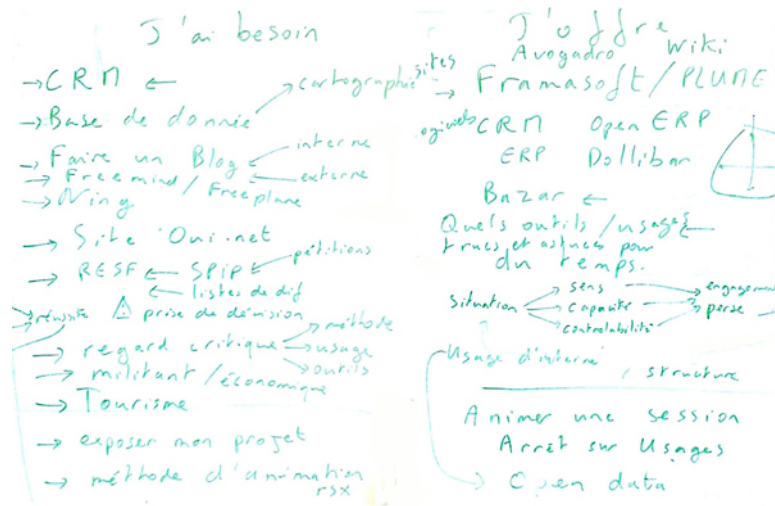 J'ai besoin
→ CRM ←
cartographie
→ Base de donnée
→ Faire un Blog
interne
externe
→ Freemind / Freeplane
→ Ning
→ Site Oui.net
→ RESF ← SPIP ← pétitions
← listes de dif
→ réussite ⚠ prise de décision
→ regard critique
→ méthode
→ usage
→ outils
→ militant / économique
→ Tourisme
→ exposer mon projet
→ méthode d'animation
rsx
J'offre
Avogadro Wiki
sites
→ Framasoft / PLUME
ogiciels CRM Open ERP
ERP Dollibar
Bazar ←
Quels outils / usages ←
trucs et astuces pour
du temps.
situation
→ sens
→ capacité
→ controlabilité
→ engagement
→ perse
Usage d'interne
/ structure
Animer une session
Arrêt sur Usages
→ Open data